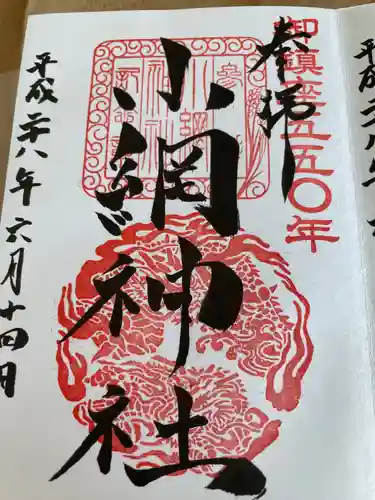 御鎮座五五〇年
奉拝
小網神社
平成二十八年六月十四日